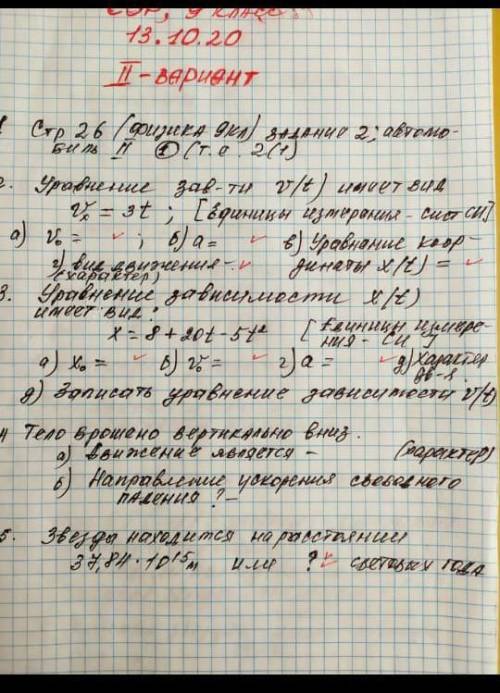 СОР, 9 класс
13.10.20
II - вариант
Стр 26 (физика 9кл) задание 2; автомо-
биль II ① (т.е. 2(1)
2. Уравнение зав-ти v(t) имеет вид
vₓ = 3t ; [Единицы измерения - сист СИ]
а) v₀ = ✓ ; б) a = ✓ в) Уравнение коор-
г) вид движения - ✓ динаты x(t) = ✓
(характер)
3. Уравнение зависимости x(t)
имеет вид:
x = 8 + 20t - 5t² [Единицы измере-
ния - СИ]
а) x₀ = ✓ б) v₀ = ✓ г) a = ✓ д) характер
дв-я
д) Записать уравнение зависимости v(t)
4 Тело брошено вертикально вниз.
а) движение является - (характер)
б) Направление ускорения свободного
падения? -
5. Звезды находится на расстоянии
37,84 · 10¹⁵м или ? ✓ световых года